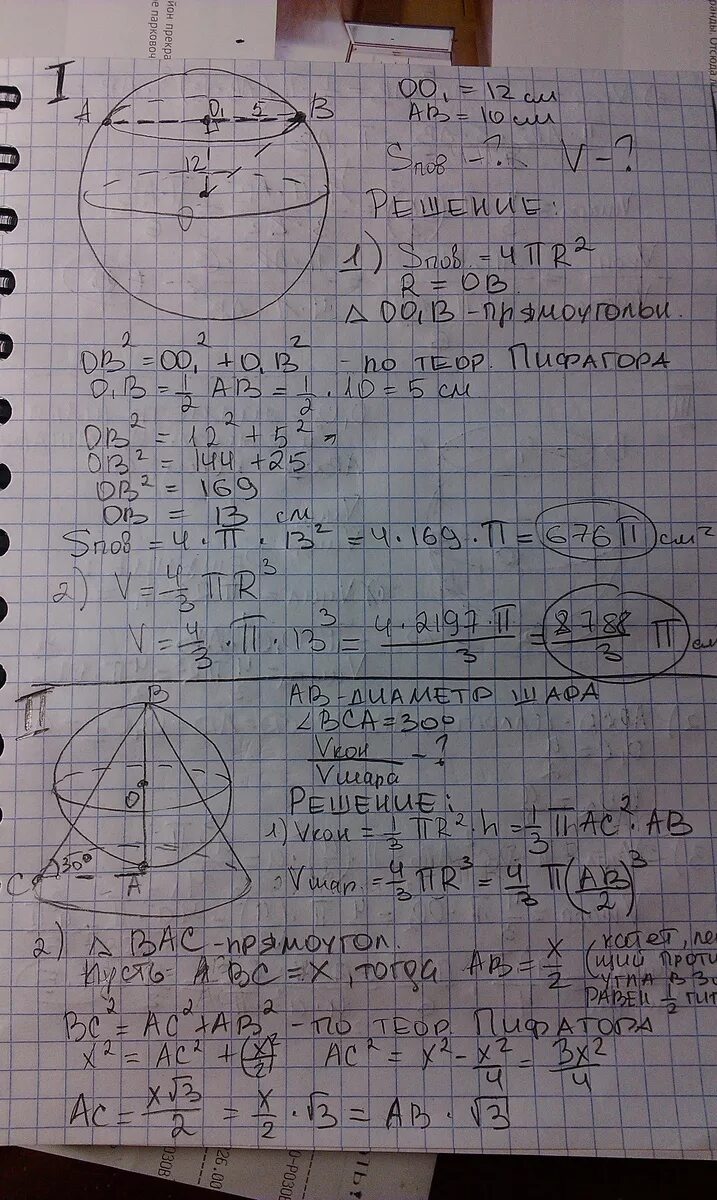 йон прекра
е парковоч
I
A
O₁
5
B
12
O
OO₁ = 12 см
AB = 10 см
Sпов - ? V - ?
РЕШЕНИЕ:
1) Sпов. = 4πR²
R = OB
△ OO₁B - прямоугольн.
OB² = OO₁² + O₁B² - по теор. Пифагора
O₁B = 1/2 AB = 1/2 · 10 = 5 см
OB² = 12² + 5² =
OB² = 144 + 25
OB² = 169
OB = 13 см
Sпов = 4 · π · 13² = 4 · 169 · π = 676π см²
2) V = 4/3 πR³
V = 4/3 · π · 13³ = 4 · 2197 · π / 3 = 8788/3 π см
II
B
O
C
30°
A
AB - диаметр шара
∠BCA = 30°
Vкон / Vшара - ?
РЕШЕНИЕ:
1) Vкон = 1/3 πR² · h = 1/3 π AC² · AB
Vшар. = 4/3 πR³ = 4/3 π(AB/2)³
2) △ BAC - прямоугол.
Пусть BC = x, тогда AB = x/2 (катет, ле
щий проти
угла в 3
РАВЕН 1/2 гип
BC² = AC² + AB² - по теор. Пифагора
x² = AC² + (x/2)² AC² = x² - x²/4 = 3x²/4
AC = x√3/2 = x/2 · √3 = AB · √3
26.00